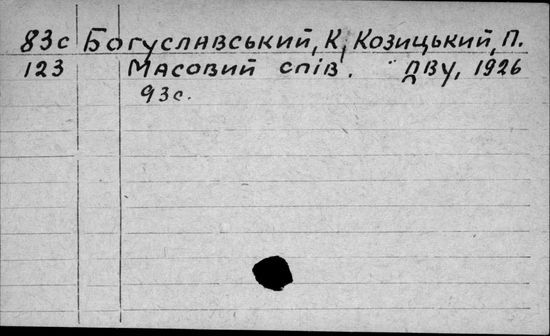 83с Богуславський, К, Козицький, П.
123 Масовий спів. ДВУ, 1926
93с.